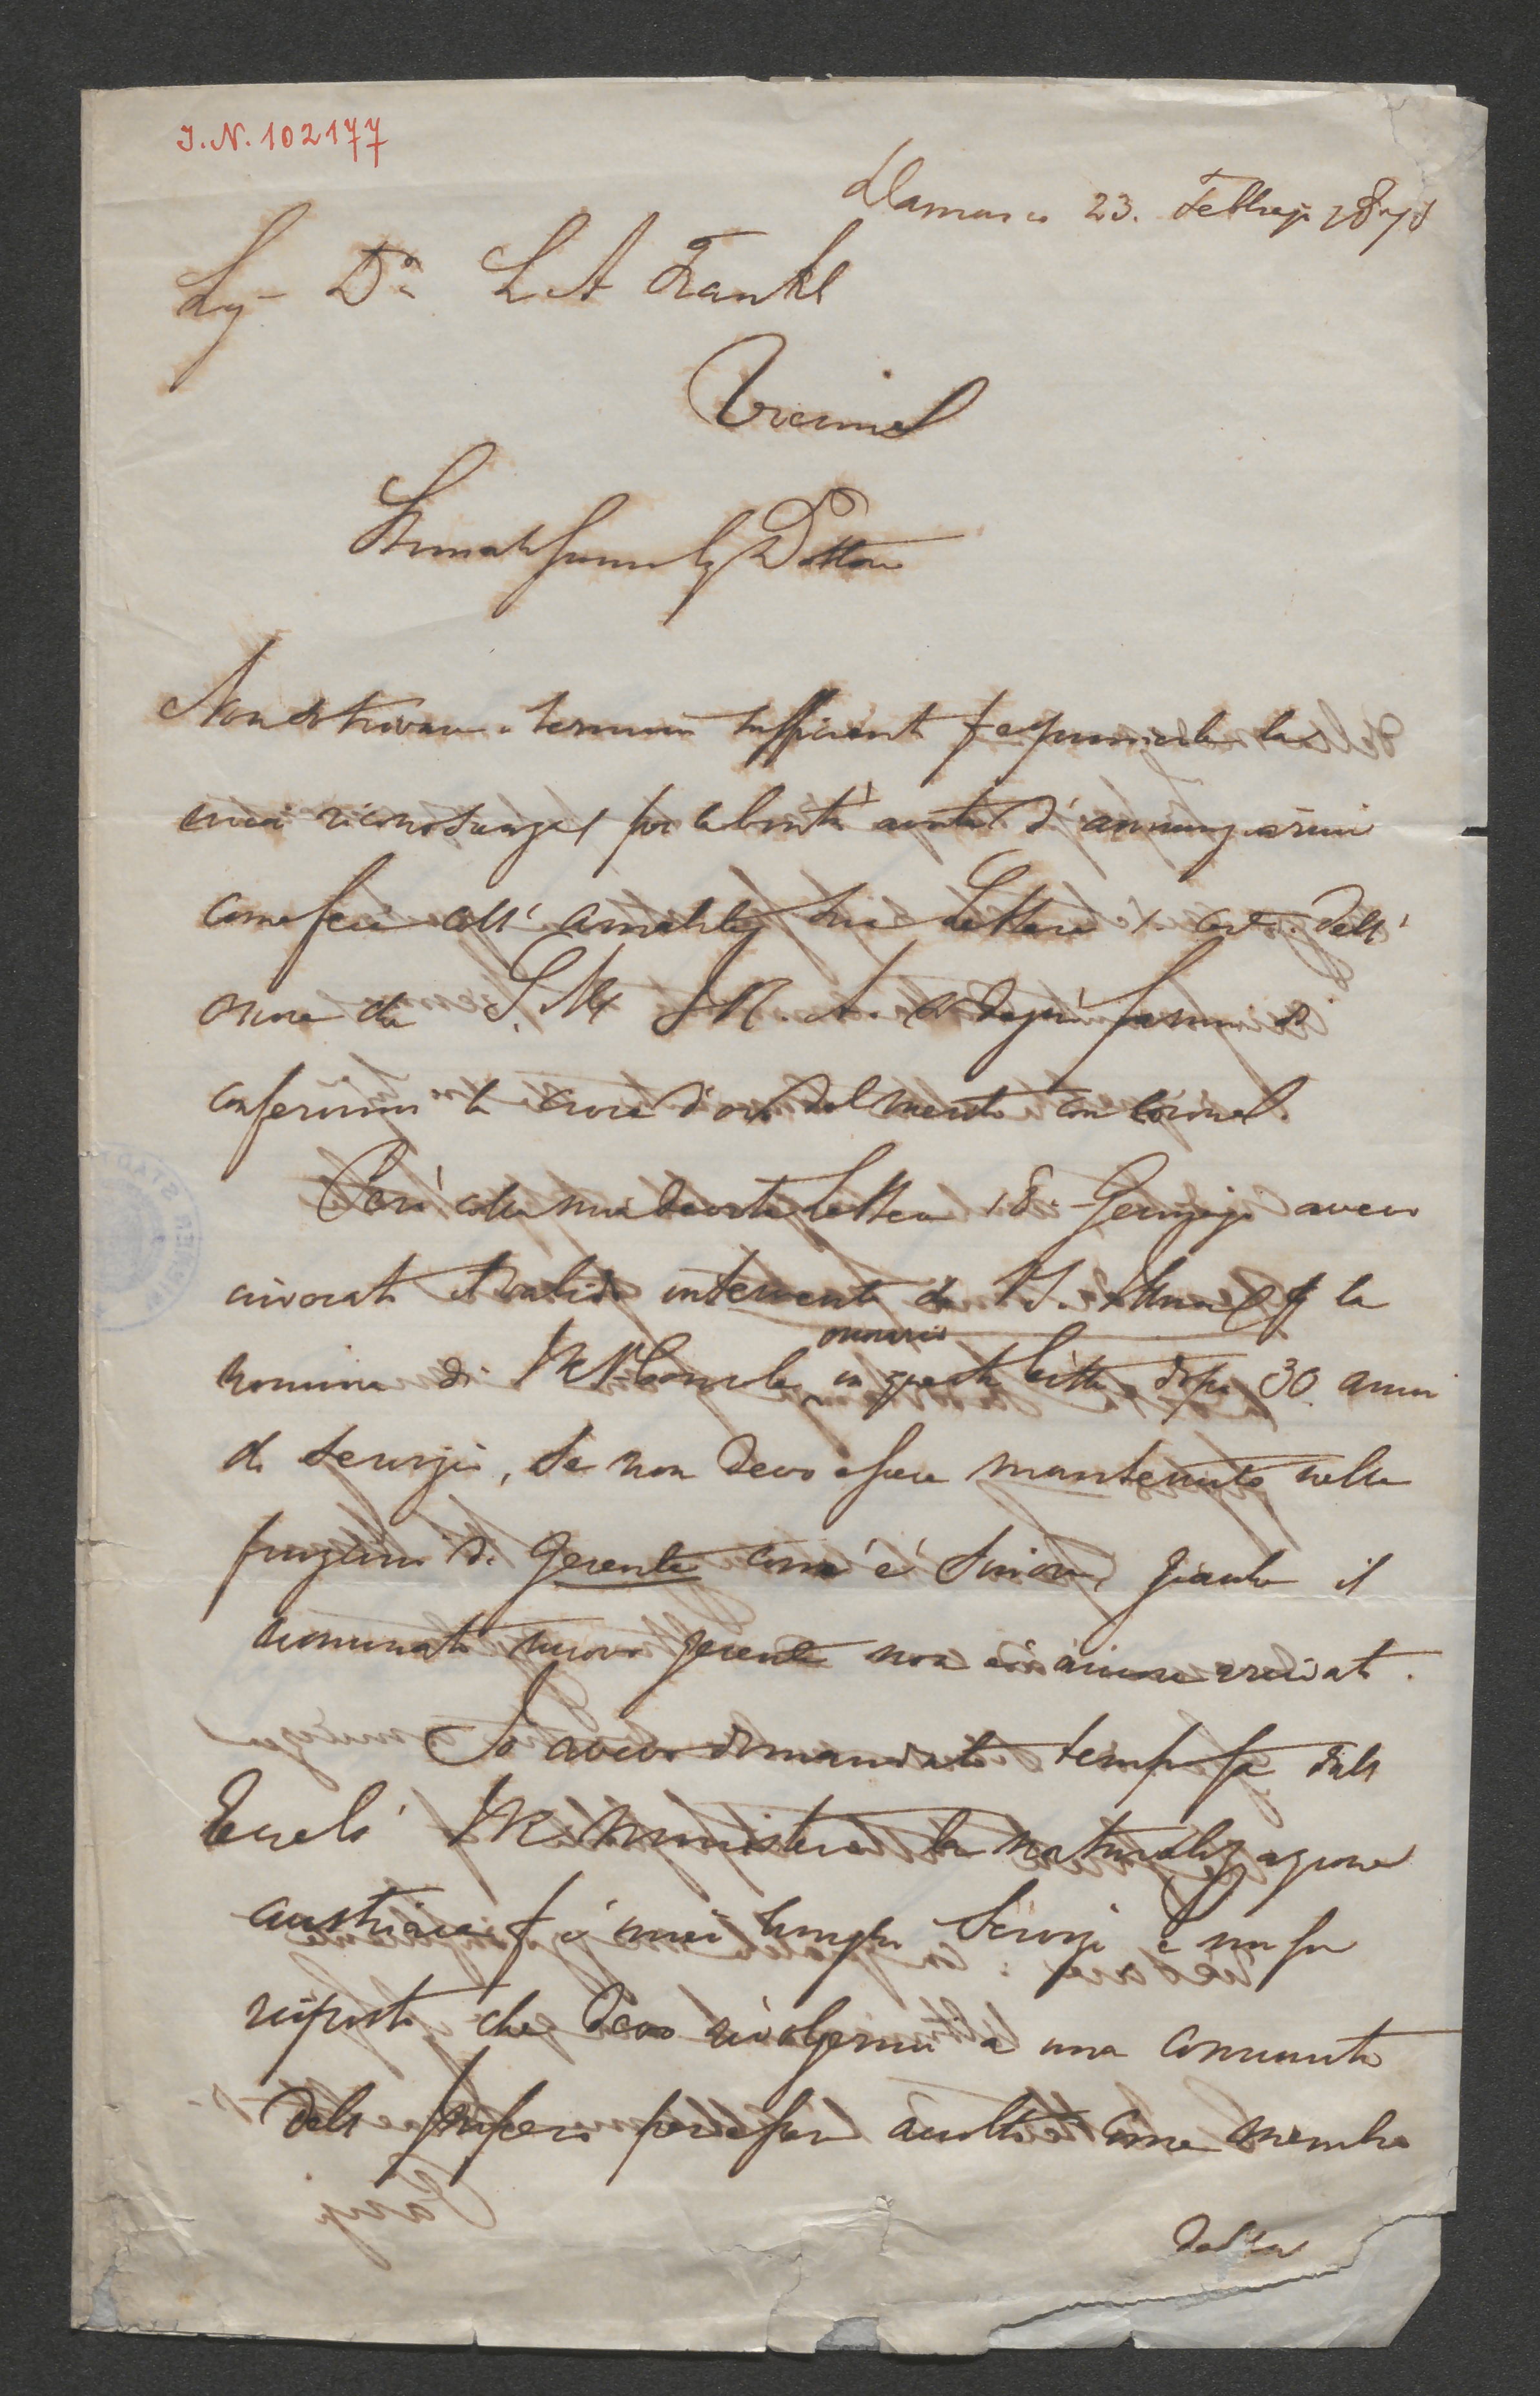 J.N. 102177
Damasco 23. Febbrajo 1871
Sigr Dr L A Frankl
Vienne
Stimatissimo Sig Dottore
Non trovare termini sufficienti per esprimerle la
mia riconoscenza per la bontà avuta d'annunziarmi
come fece coll' amabile sua Lettera 1. corr. dell'
onore che S. M. I. R. A. si degnò farmi di
conferirmi la croce d'oro del merito con corona.
Però colla mia devota Lettera 18. Gennajo avevo
invocato il valido intervento di V. S. Illma per la
nomina di IR V. Console onorario in questa città dopo 30 anni
di servizio, se non devo essere mantenuto nelle
funzioni di gerente com' è sinora, giacchè il
nominato nuovo gerente non è ancora arrivato.
Io avevo domandato tempo fa dall
Eccelso IR Ministero la naturalizzazione
austriaca per i miei lunghi servizj e mi fu
risposto che devo rivolgermi a una comunità
dell' Impero per esser accolto come membro
della